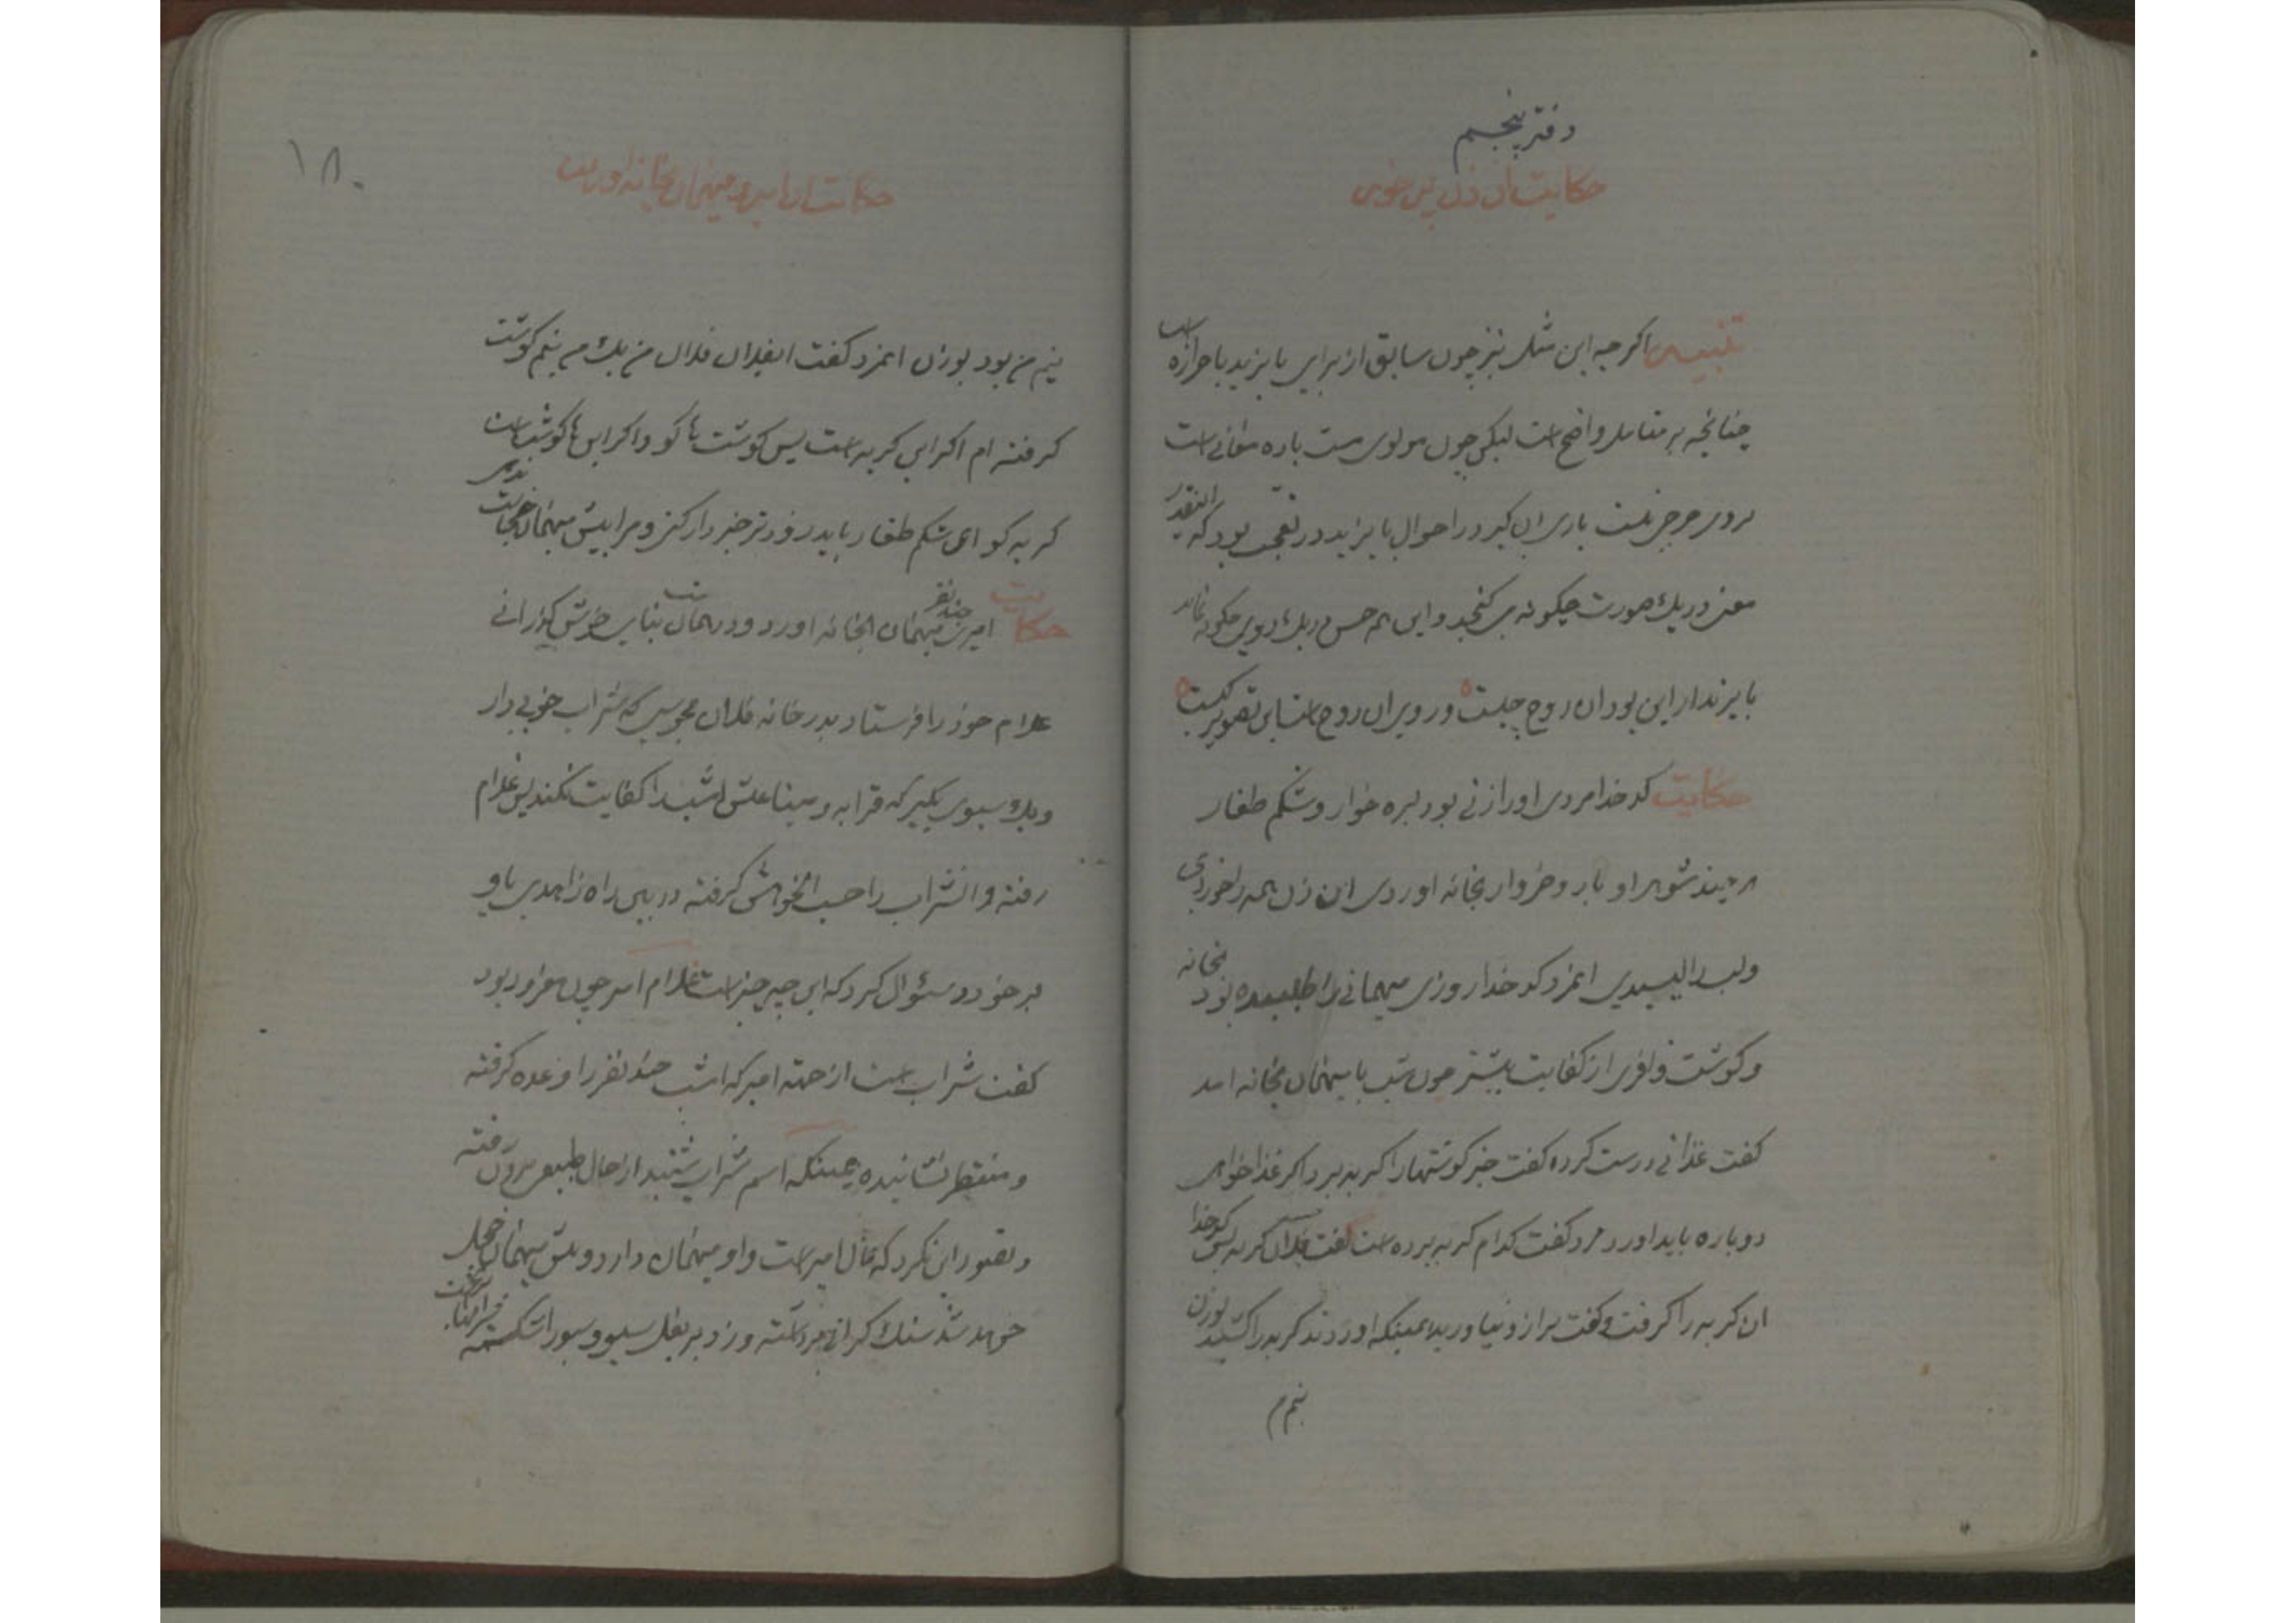 دفتر پنجم
حکایت ان زن پس خوس
تنبیه اکرچه این مثل نیز چون سابق از برای بایزید با حرازه است
چنانچه بر متامل واضح است لیکن چون مولوی مست باده معانی است
بروی حرجی نیست باری ان کبر در احوال بایزید در تعجب بود که اینقدر
معنی در یک صورت چکونه می کنجد و این همه حسن در یک روی چکونه نماید
بایزید ار این بود ان روح چیست ور وی ان روح است این تصویر کیست
حکایت کدخدا مردی اورا زنی بود لبره خوار و شکم طغار
هر چیز شوهر او بار و خروار بخانه اوردی ان زن همه را خوردی
ولب را لیسیدی انمرد کدخدا روزی میهمانی را طلبیده بود بخانه
وکوشت وافری از کفایت بیشتر چون شب با میهمان بخانه امد
کفت غذائی درست کرده کفت خیر کوشتها را کربه برد اکر غذا خواهی
دوباره باید اورد مرد کفت کدام کربه برده است کفت فلان کربه پس کدخدا
ان کربه را کرفت و کفت ترازو بیاورید همینکه اوردند کربه را کشید بوزن
نیم من
۱۸۰
حکایت ان امیری میهمان بخانه اورد
نیم من بود بوزن انمرد کفت ایفلان فلان من یک من نیم کوشت
کرفته ام اکر این کربه است پس کوشت ها کو و اکر این ها کوشت است
کربه کو ای شکم طغار باید زودتر خبردار کنی و مرا پیش میهمان خجالت ندهی
حکایت امیری چند نفر میهمان بخانه اورد و در همان شب بنای خوش کذرانی
غلام خود را فرستاد بدر خانه فلان مجوسی که شراب خوبی دارد
ویک سبوی بکیر که قرابه و مینا عیش امشب را کفایت نکند پس غلام
رفته و انشراب را حسب الخواهش کرفته در بین راه زاهدی باو
برخورد سئوال کرد که این چه چیز است غلام امیر چون مغرور بود
کفت شراب است از جهته امیر که امشب چند نفر را وعده کرفته
و منتظر نشانیده همینکه اسم شراب شنید از حال طبیعی بیرون رفته
و تصور این نکرد که مال امیر است و او میهمان دارد و پیش میهمان خجل
خواهد شد سنک کرانی برداشته و زد بر بغل سبو و سبو را شکسته